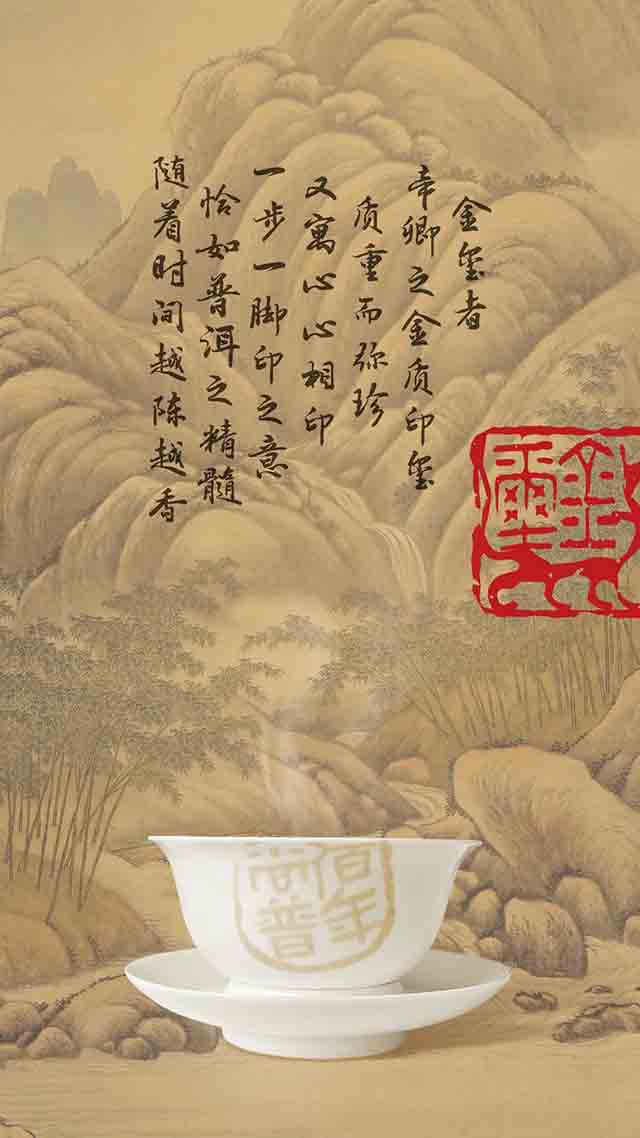 金玺者
卿之金质印玺
质重而弥珍
又寓心心相印
一步一脚印之意
恰如普洱之精髓
随着时间越陈越香
金璽
百年
尚普